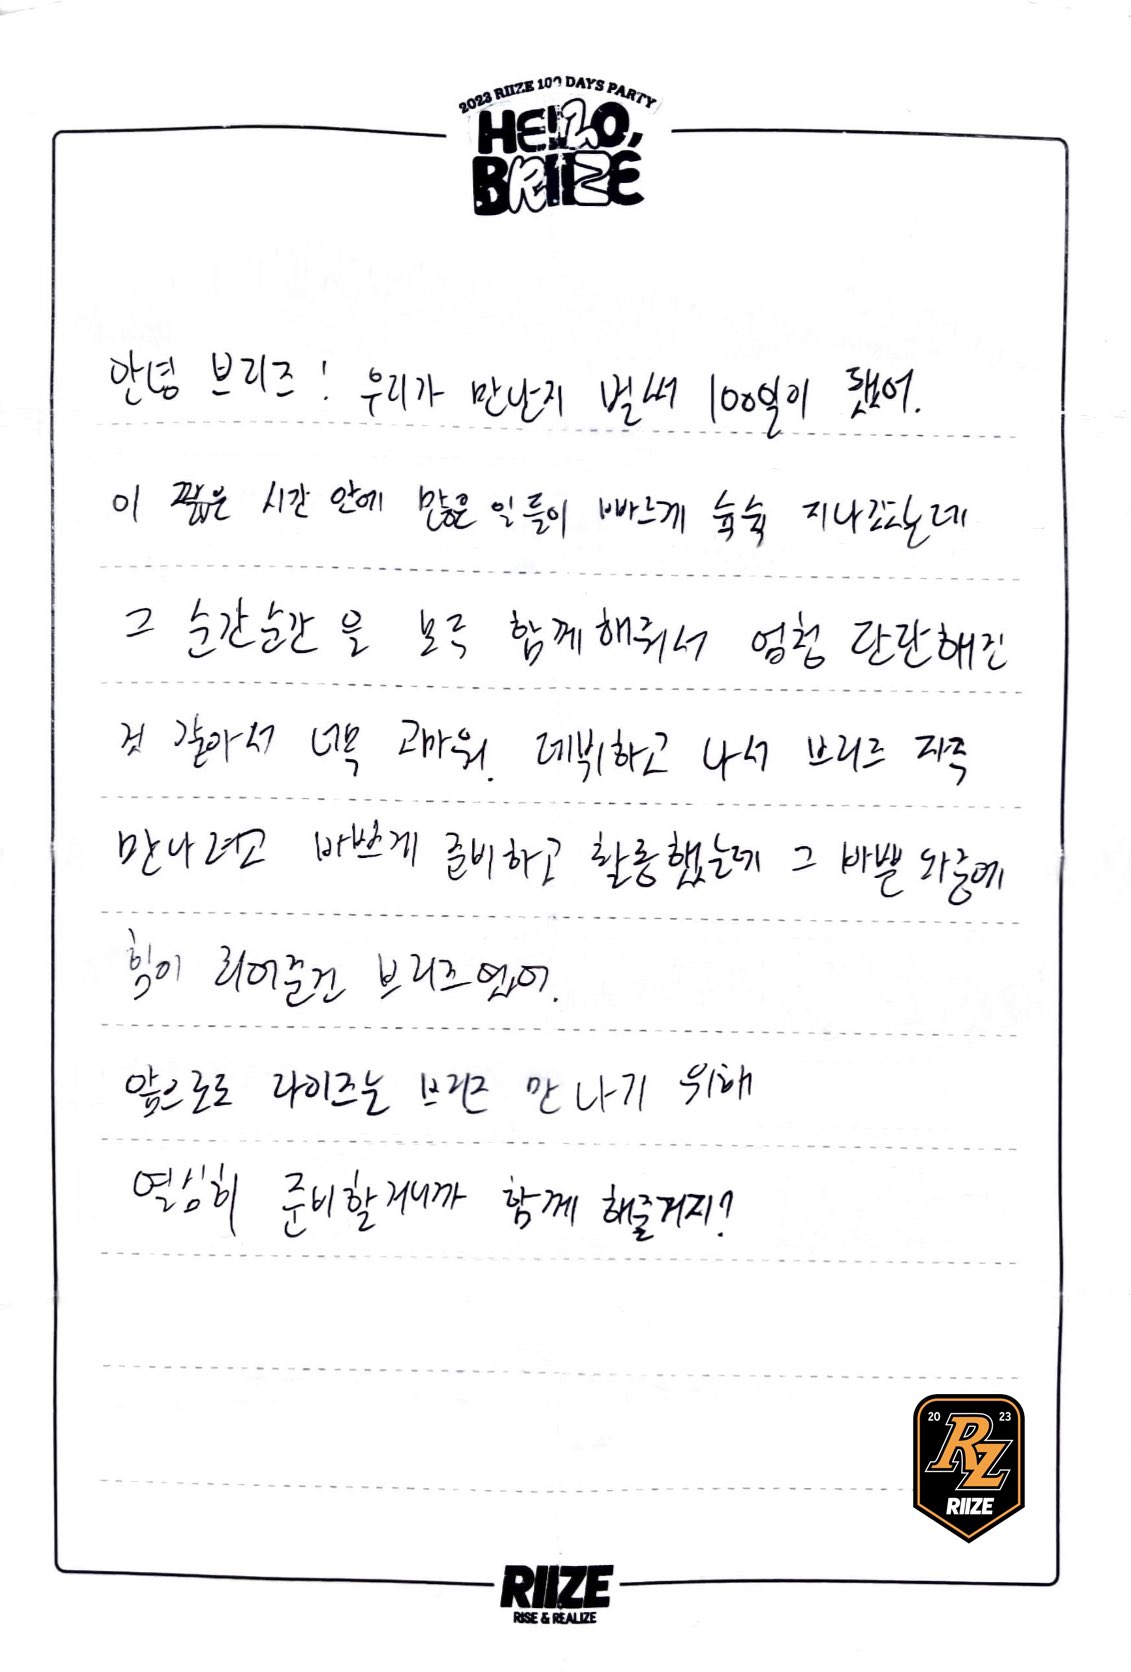 2023 RIIZE 100 DAYS PARTY
HELLO,
BRIIZE
안녕 브리즈! 우리가 만난지 벌써 100일이 됐어.
이 짧은 시간 안에 많은 일들이 빠르게 슉슉 지나갔는데
그 순간순간을 모두 함께해줘서 엄청 단단해진
것 같아서 너무 고마워. 데뷔하고 나서 브리즈 자주
만나려고 바쁘게 준비하고 활동했는데 그 바쁠 와중에
힘이 되어준건 브리즈였어.
앞으로도 라이즈는 브리즈 만나기 위해
열심히 준비할거니까 함께 해줄거지?
20 23
RZ
RIIZE
RIIZE
RISE & REALIZE